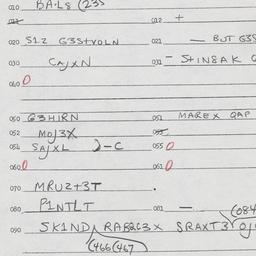 010 BA·L8 (235
012 +
020 S1Z G3S+VOLN 021 — BUT G3S
030 CAJXN 031 – S+IN8AK
040 0
050 G3HIRN 051 MAREX QAP
052 MOJ3X
054 SAJXL 2-C 055 0
060 0 061 0
070 MRUZ+3T
080 P1NTLT 081 — (084
090 SK1NDA RABQC3X SRAXT3
(466 (467